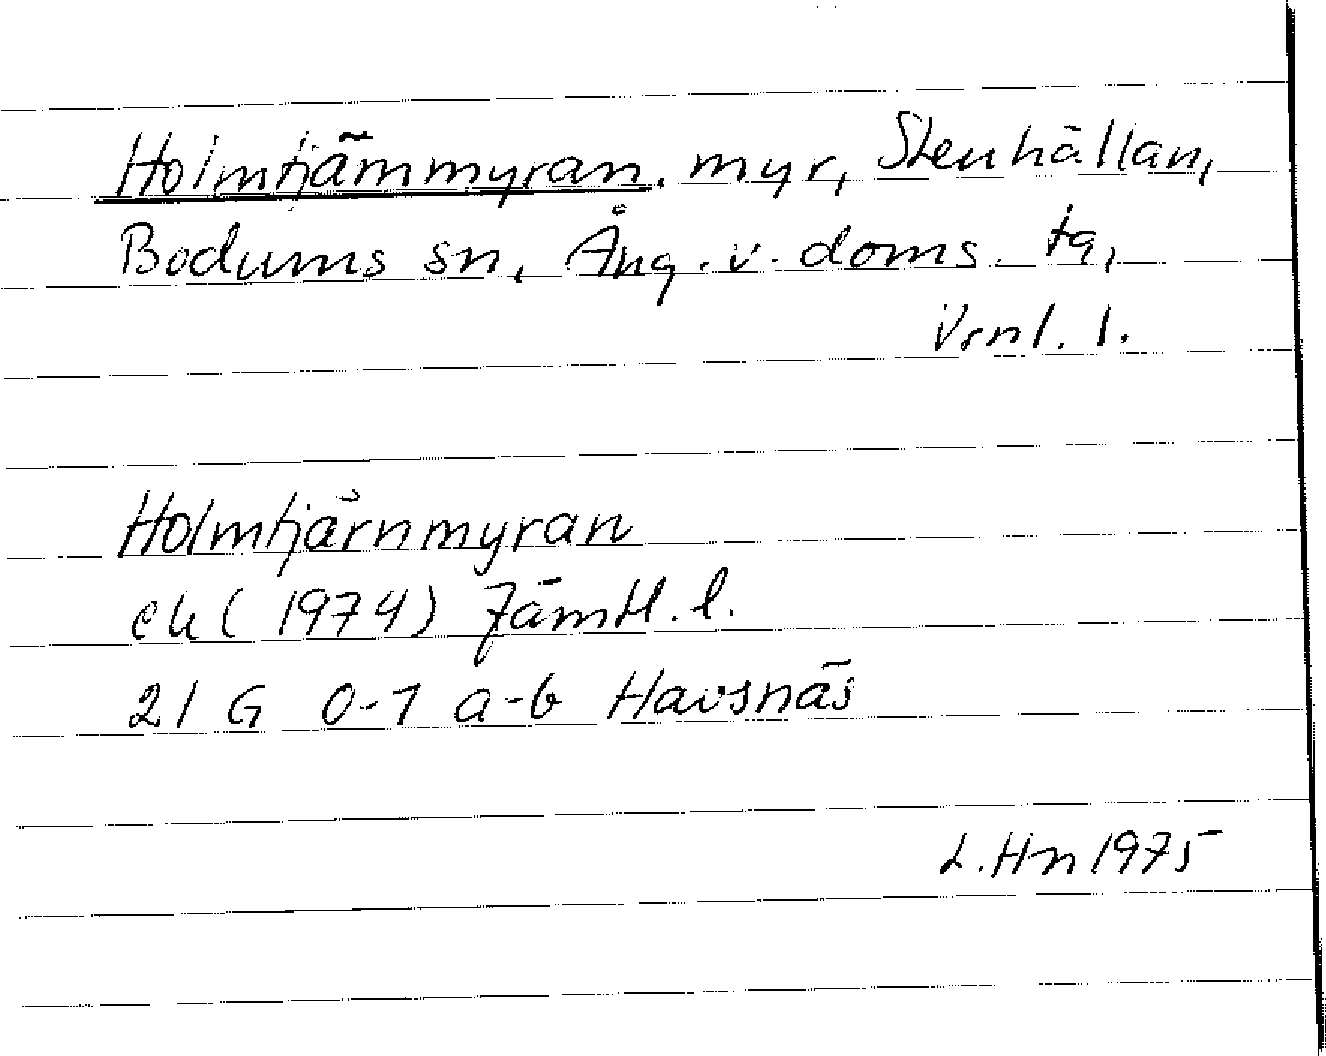 Holmtjämmyran. myr, Stenhällan,
Bodums sn, Ång. v. doms. ta,
Vrnl. l.
Holmtjärnmyran
ek (1974) Jämtl. l.
21 G 0-1 a-b Havsnäs
L. Hn 1975